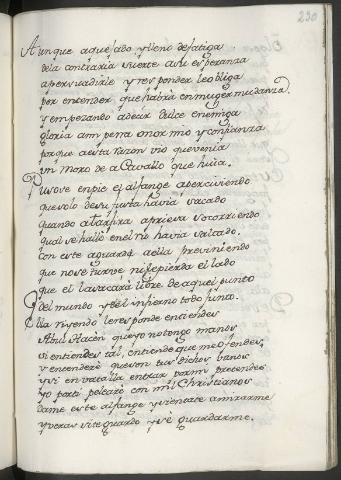 230
Aunque aquejado y lleno de fatiga
de la contraria suerte a su esperanza
a persuadirle y responder le obliga
por entender que habrá en muger mudanza.
y empezando a decir dulce enemiga
gloria am pena onor mio y confianza
porque a esta razon vio que venia
un Moro de a Cavallo que huia.
Pusose en pie el alfange aperciviendo
que solo de su justa havia sacado
quando atarfira apriesa socorriendo
qual se hallo en el rio havia saltado.
con este aguarda a ella previniendo
que no se turve ni se pierda el lado
que el la sacará libre de aquel punto
del mundo y del infierno todo junto.
Ella riyendo le responde entiendes
Abul Hacén que yo no tengo manos
si entiendes tal, entiende que me ofendes,
y entenderé que son tus dichos vanos
y si en vatalla entrar por mi pretendes
yo por ti pelearé con mil Christianos
dame este alfange y sientate a mirarme
y veras si te guardo y sé guardarme.